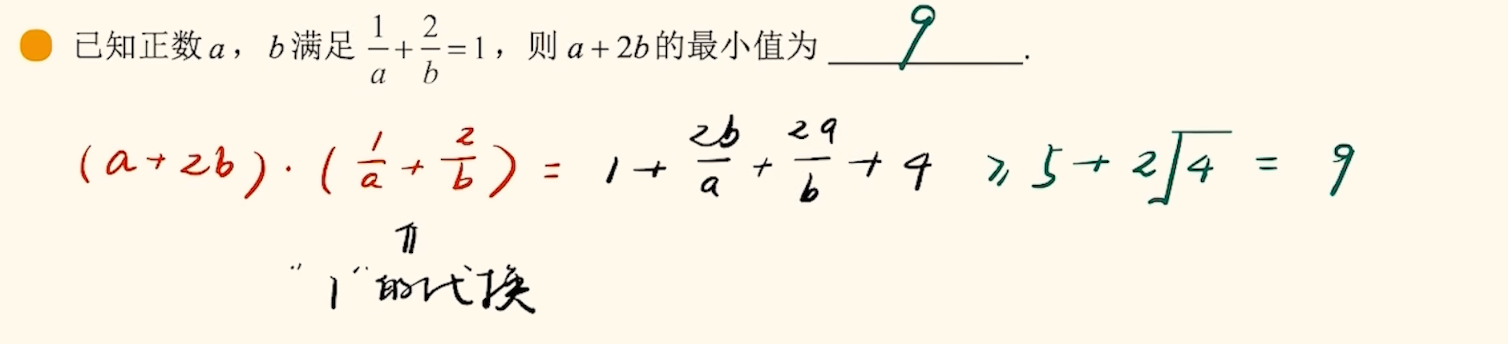 已知正数a，b满足 1/a + 2/b = 1，则a+2b的最小值为 9 .
(a+2b)·(1/a + 2/b) = 1 + 2b/a + 2a/b + 4 ≥ 5 + 2√4 = 9
"1"的代换